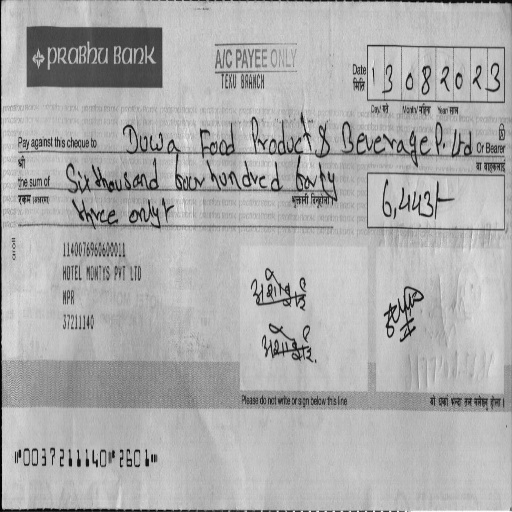 PRABHU BANK
A/C PAYEE ONLY
TEKU BRANCH
Date 13082023
मिति
Day/ गते Month/ महिना Year/ साल
Pay against this cheque to Duwa Food Product & Beverage P. Ltd Or Bearer
श्री वा वाहकलाई
the sum of Six thousand four hundred forty
रकम (अक्षरूपी) भुक्तानी दिनुहोला।
three only/- 6,443/-
1140076960600011
HOTEL MONTYS PVT LTD
NPR
37211140
Please do not write or sign below this line
"0037211140" 2601"